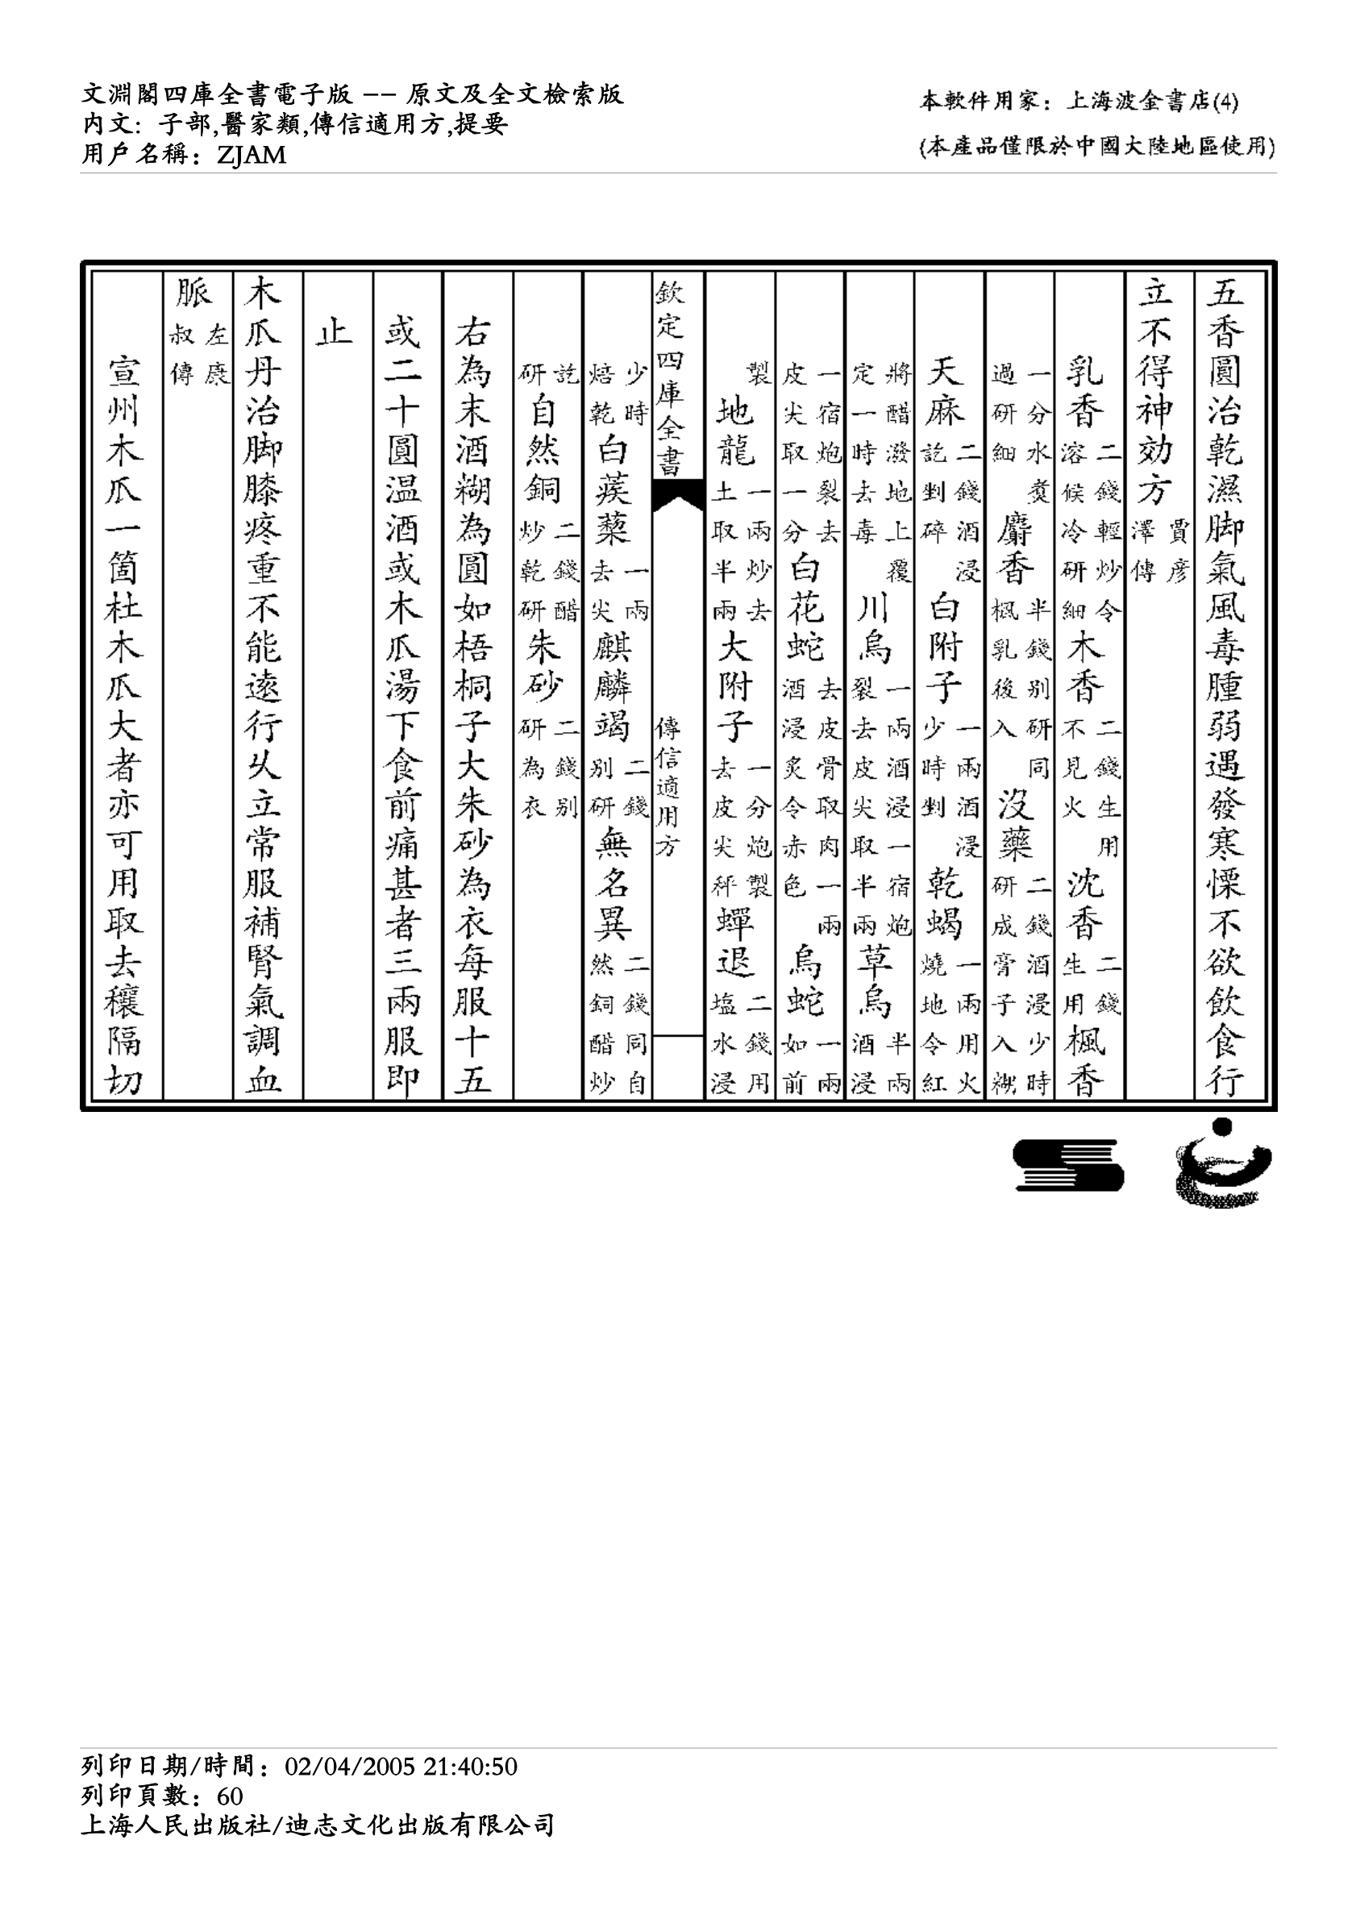 文淵閣四庫全書電子版 −− 原文及全文檢索版
內文: 子部,醫家類,傳信適用方,提要
用戶名稱: ZJAM
本軟件用家: 上海波金書店(4)
(本產品僅限於中國大陸地區使用)
五香圓治乾濕脚氣風毒腫弱遇發寒慄不欲飲食行
立不得神効方賈彦澤傳
乳香二錢輕炒令溶候冷研細木香二錢生用不見火沈香二錢生用楓香
一分水煑過研細麝香半錢别研同楓乳後入沒藥二錢酒浸少時研成膏子入糊
天麻二錢酒浸訖剉碎白附子一兩酒浸少時剉乾蝎一兩用火燒地令紅
將醋潑地上覆定一時去毒川烏一兩酒浸一宿炮裂去皮尖取半兩草烏半兩酒浸
一宿炮裂去皮尖取一分白花蛇去皮骨取肉一兩酒浸炙令赤色烏蛇一兩如前
製地龍一兩炒去土取半兩大附子一分炮製去皮尖秤蟬退二錢用塩水浸
欽定四庫全書
傳信適用方
少時焙乾白蒺蔾一兩去尖麒麟竭二錢别研無名異二錢同自然銅醋炒
訖研自然銅二錢醋炒乾研朱砂二錢别研為衣
右為末酒糊為圓如梧桐子大朱砂為衣每服十五
或二十圓温酒或木瓜湯下食前痛甚者三兩服即
止
木瓜丹治脚膝疼重不能逺行乆立常服補腎氣調血
脈左康叔傳
宣州木瓜一箇杜木瓜大者亦可用取去穰隔切
列印日期/時間: 02/04/2005 21:40:50
列印頁數: 60
上海人民出版社/迪志文化出版有限公司